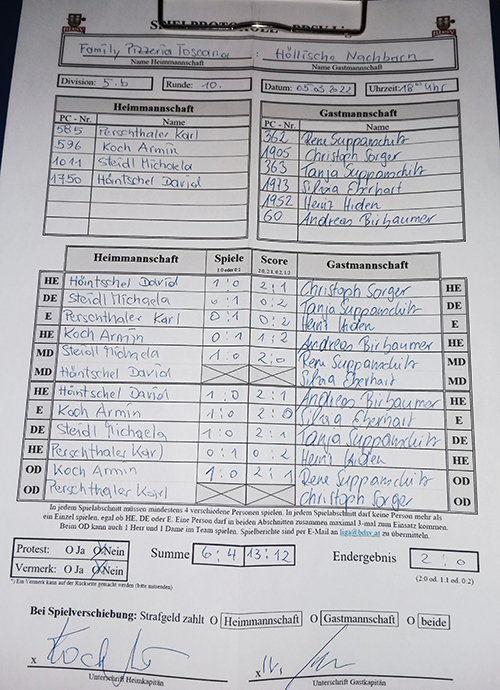 SPIELPROTOKOLL BDSV Liga
Family Pizzeria Toscana : Höllische Nachbarn
Name Heimmannschaft Name Gastmannschaft
Division: 5.b Runde: 10. Datum: 05.03.2022 Uhrzeit: 18 00 Uhr
Heimmannschaft Gastmannschaft
PC - Nr. Name PC - Nr. Name
585 Perschthaler Karl 362 Rene Suppanschitz
596 Koch Armin 1905 Christoph Sorger
1011 Steidl Michaela 363 Tanja Suppanschitz
1750 Häntschel David 1973 Silvia Eberhart
1952 Heinz Hiden
60 Andreas Birbaumer
Heimmannschaft Spiele Score Gastmannschaft
1:0 oder 0:1 2:0, 2:1, 0:2, 1:2
HE Häntschel David 1:0 2:1 Christoph Sorger HE
DE Steidl Michaela 0:1 0:2 Tanja Suppanschitz DE
E Perschthaler Karl 0:1 0:2 Heinz Hiden E
HE Koch Armin 0:1 1:2 Andreas Birbaumer HE
MD Steidl Michaela 1:0 2:0 Rene Suppanschitz MD
MD Häntschel David Silvia Eberhart MD
HE Häntschel David 1:0 2:1 Andreas Birbaumer HE
E Koch Armin 1:0 2:0 Silvia Eberhart E
DE Steidl Michaela 1:0 2:1 Tanja Suppanschitz DE
HE Perschthaler Karl 0:1 0:2 Heinz Hiden HE
OD Koch Armin 1:0 2:1 Rene Suppanschitz OD
OD Perschthaler Karl Christoph Sorger OD
In jedem Spielabschnitt müssen mindestens 4 verschiedene Personen spielen. In jedem Spielabschnitt darf keine Person mehr als
ein Einzel spielen, egal ob HE, DE oder E. Eine Person darf in beiden Abschnitten zusammen maximal 3-mal zum Einsatz kommen.
Beim OD kann auch 1 Herr und 1 Dame im Team spielen. Spielberichte sind per E-Mail an liga@bdsv.at zu übermitteln.
Protest: O Ja O Nein Summe 6:4 13:12 Endergebnis 2:0
Vermerk: O Ja O Nein (2:0 od. 1:1 od. 0:2)
*) Ein Vermerk kann auf der Rückseite gemacht werden (bitte ankreuzen)
Bei Spielverschiebung: Strafgeld zahlt O Heimmannschaft O Gastmannschaft O beide
x x
Unterschrift Heimkapitän Unterschrift Gastkapitän